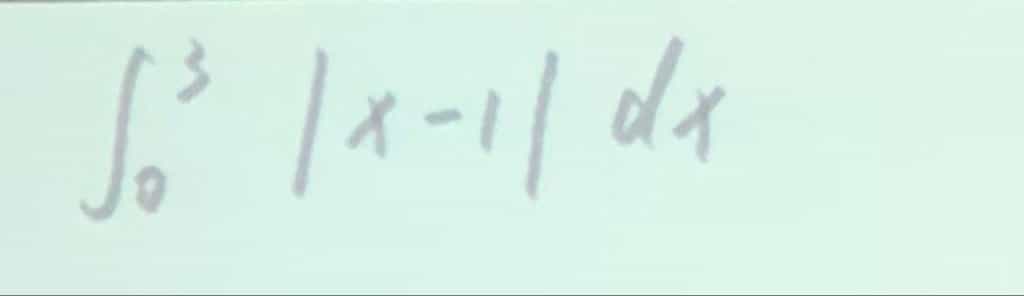 ∫₀³ |x-1| dx